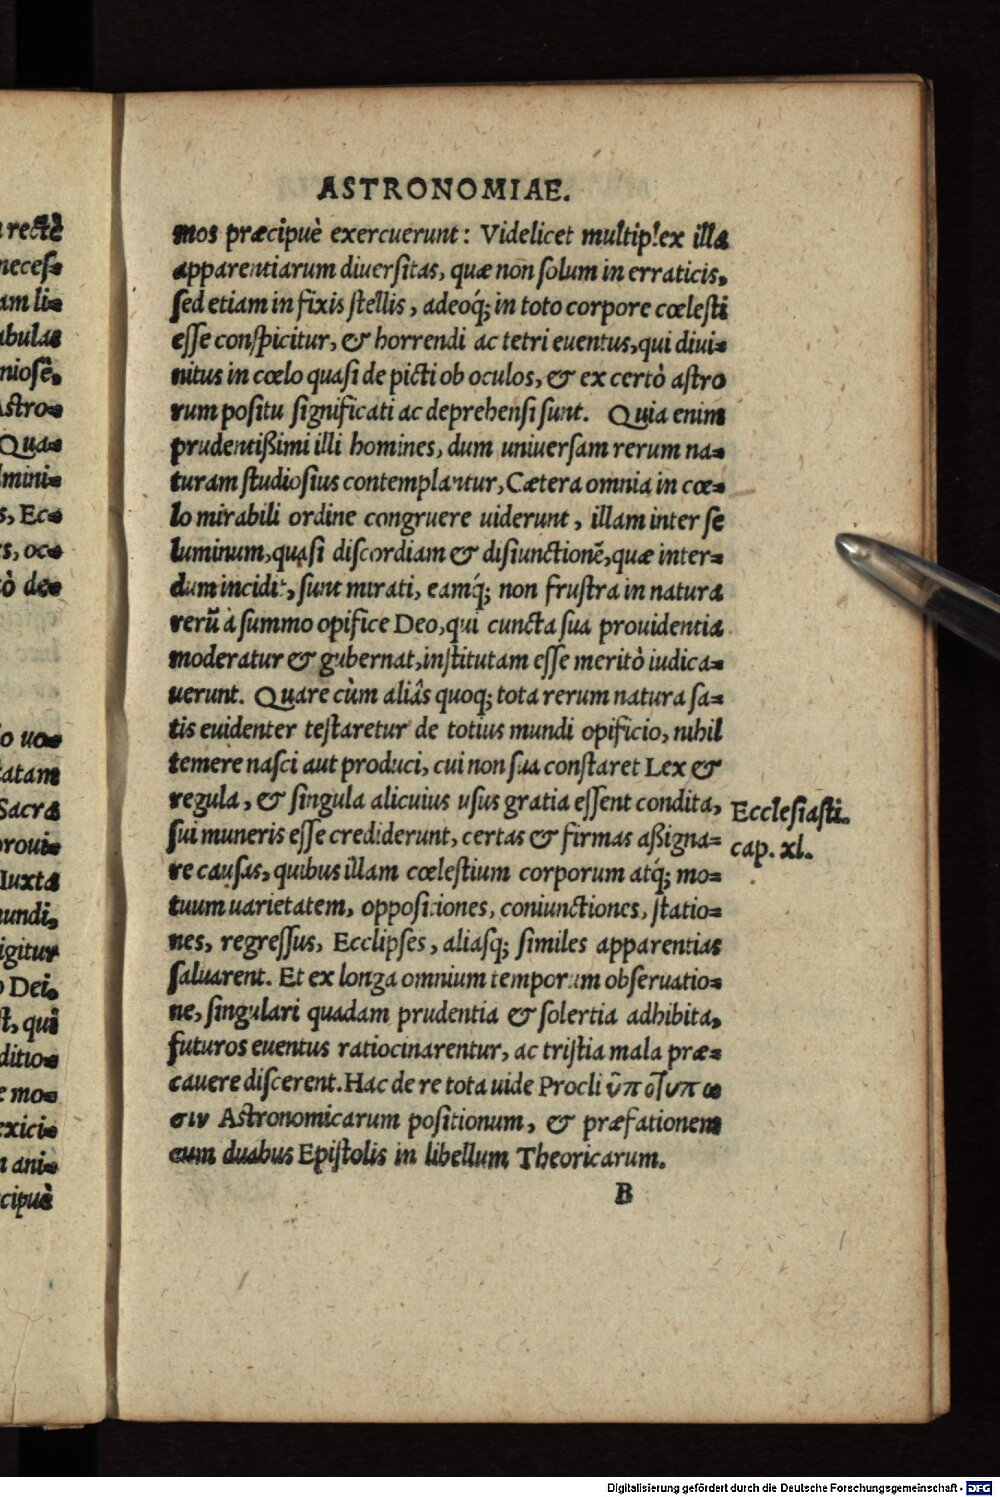 ASTRONOMIAE.
mos præcipuè exercuerunt: Videlicet multiplex illa
apparentiarum diuersitas, quæ non solum in erraticis,
sed etiam in fixis stellis, adeoq́; in toto corpore cœlesti
esse conspicitur, & horrendi ac tetri euentus, qui diui=
nitus in cœlo quasi de picti ob oculos, & ex certò astro
rum positu significati ac deprehensi sunt. Quia enim
prudentißimi illi homines, dum uniuersam rerum na=
turam studiosius contemplantur, Cætera omnia in cœ=
lo mirabili ordine congruere uiderunt, illam inter se
luminum, quasi discordiam & disiunctionē, quæ inter=
dum incidit, sunt mirati, eamq́; non frustra in natura
rerū à summo opifice Deo, qui cuncta sua prouidentia
moderatur & gubernat, institutam esse meritò iudica=
uerunt. Quare cùm aliâs quoq; tota rerum natura sa=
tis euidenter testaretur de totius mundi opificio, nihil
temere nasci aut produci, cui non sua constaret Lex &
regula, & singula alicuius usus gratia essent condita,
sui muneris esse crediderunt, certas & firmas aßigna=
re causas, quibus illam cœlestium corporum atq́; mo=
tuum uarietatem, oppositiones, coniunctiones, statio=
nes, regressus, Ecclipses, aliasq; similes apparentias
saluarent. Et ex longa omnium temporum obseruatio=
ne, singulari quadam prudentia & solertia adhibita,
futuros euentus ratiocinarentur, ac tristia mala præ=
cauere discerent. Hac de re tota uide Procli
σιν Astronomicarum positionum, & præfationem
cum duabus Epistolis in libellum Theoricarum.
B
Ecclesiasti.
cap. xl.
rectè
neces=
am li=
abulas
niosè,
Astro=
Qua=
lmini=
s, Ec=
s, oc=
ò de=
o uo=
tatam
Sacra
proui=
Iuxta
undi,
igitur
o Dei,
st, qui
ditio=
e mo=
exici=
n ani=
cipuè
Digitalisierung gefördert durch die Deutsche Forschungsgemeinschaft - DFG